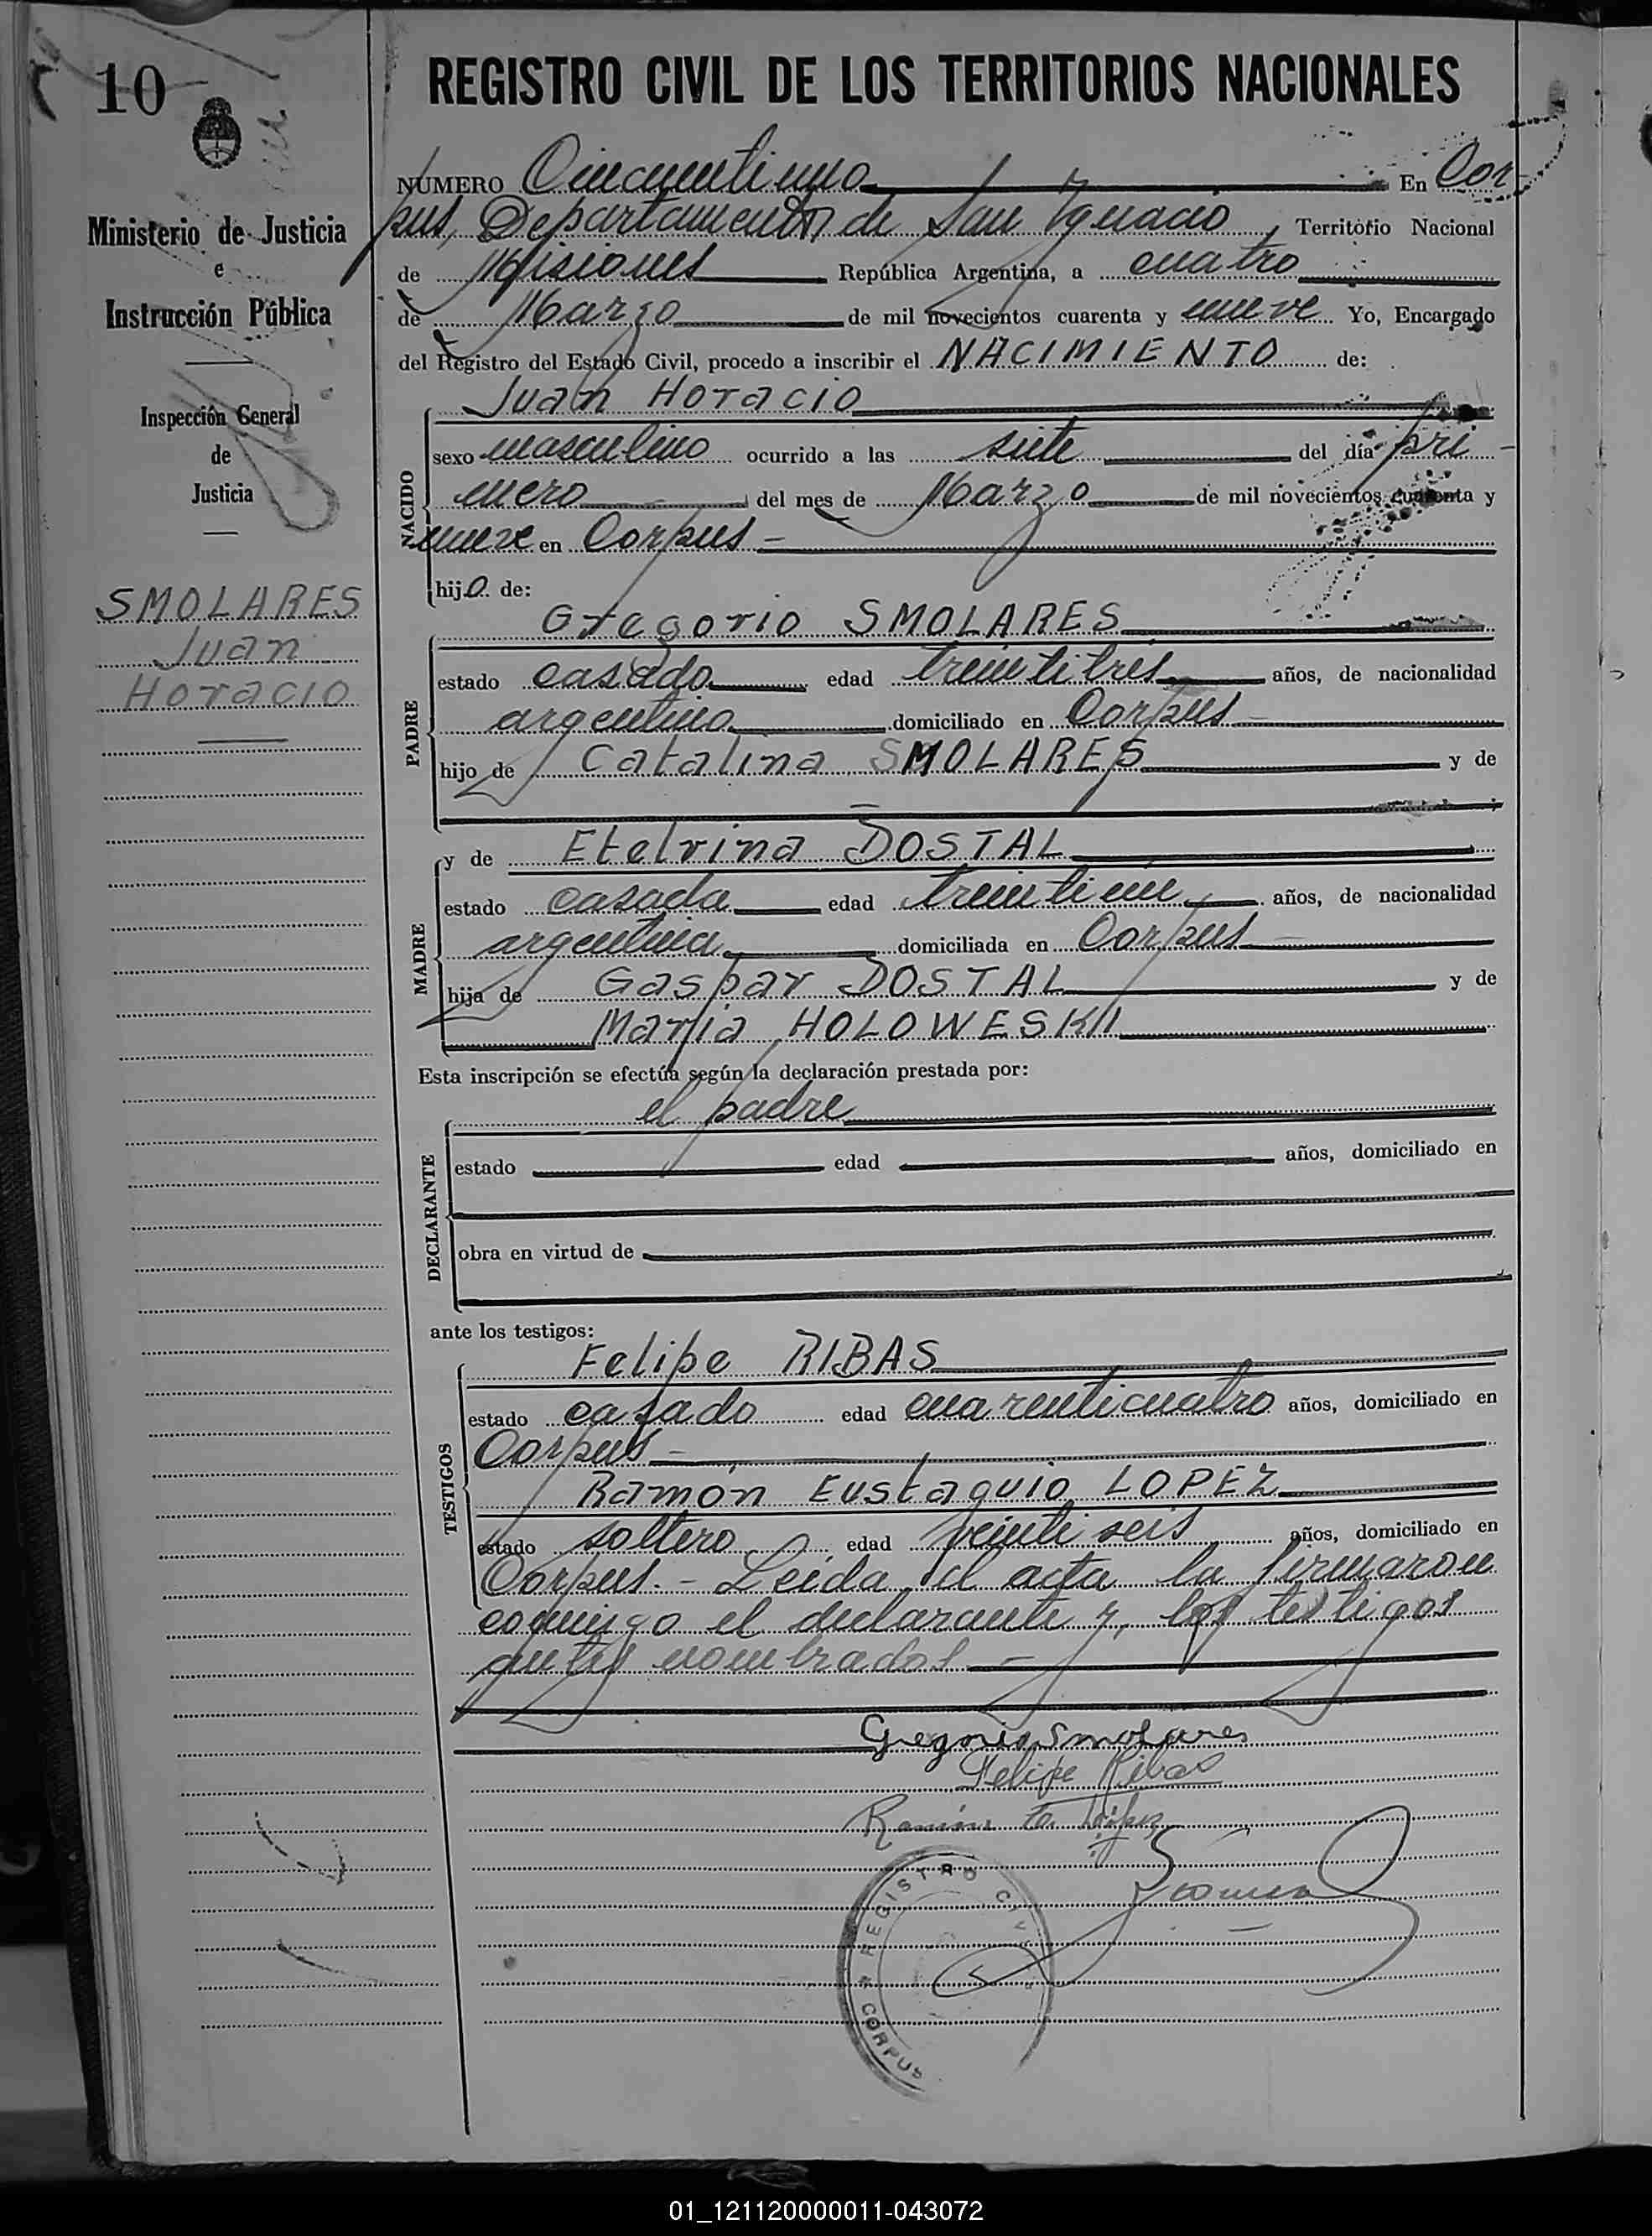 10
REGISTRO CIVIL DE LOS TERRITORIOS NACIONALES
Ministerio de Justicia
e
Instrucción Pública
Inspección General
de
Justicia
SMOLARES
Juan
Horacio
NÚMERO Cincuentiuno En Cor-
pus, Departamento de San Ignacio, Territorio Nacional
de Misiones República Argentina, a cuatro
de Marzo de mil novecientos cuarenta y nueve Yo, Encargado
del Registro del Estado Civil, procedo a inscribir el NACIMIENTO de:
Juan Horacio
NACIDO
sexo masculino ocurrido a las siete del día pri-
mero del mes de Marzo de mil novecientos cuarenta y
nueve en Corpus -
hijo de:
Gregorio SMOLARES
PADRE
estado casado edad treintitres años, de nacionalidad
argentina domiciliado en Corpus -
hijo de Catalina SMOLARES y de
MADRE
y de Etelvina DOSTAL
estado casada edad años, de nacionalidad
argentina domiciliada en Corpus -
hija de Gaspar DOSTAL y de
María HOLOWESKII
Esta inscripción se efectúa según la declaración prestada por:
el padre
DECLARANTE
estado edad años, domiciliado en
obra en virtud de
ante los testigos:
Felipe RIBAS
TESTIGOS
estado casado edad cuarenticuatro años, domiciliado en
Corpus -
Ramón Eustaquio LOPEZ
estado soltero edad veintiseis años, domiciliado en
Corpus. - Leída el acta la firmaron
conmigo el declarante y los testigos
antes nombrados -
Gregorio Smolares
Felipe Ribas
Ramón E. López
REGISTRO CIVIL
CORPUS
01_121120000011-043072